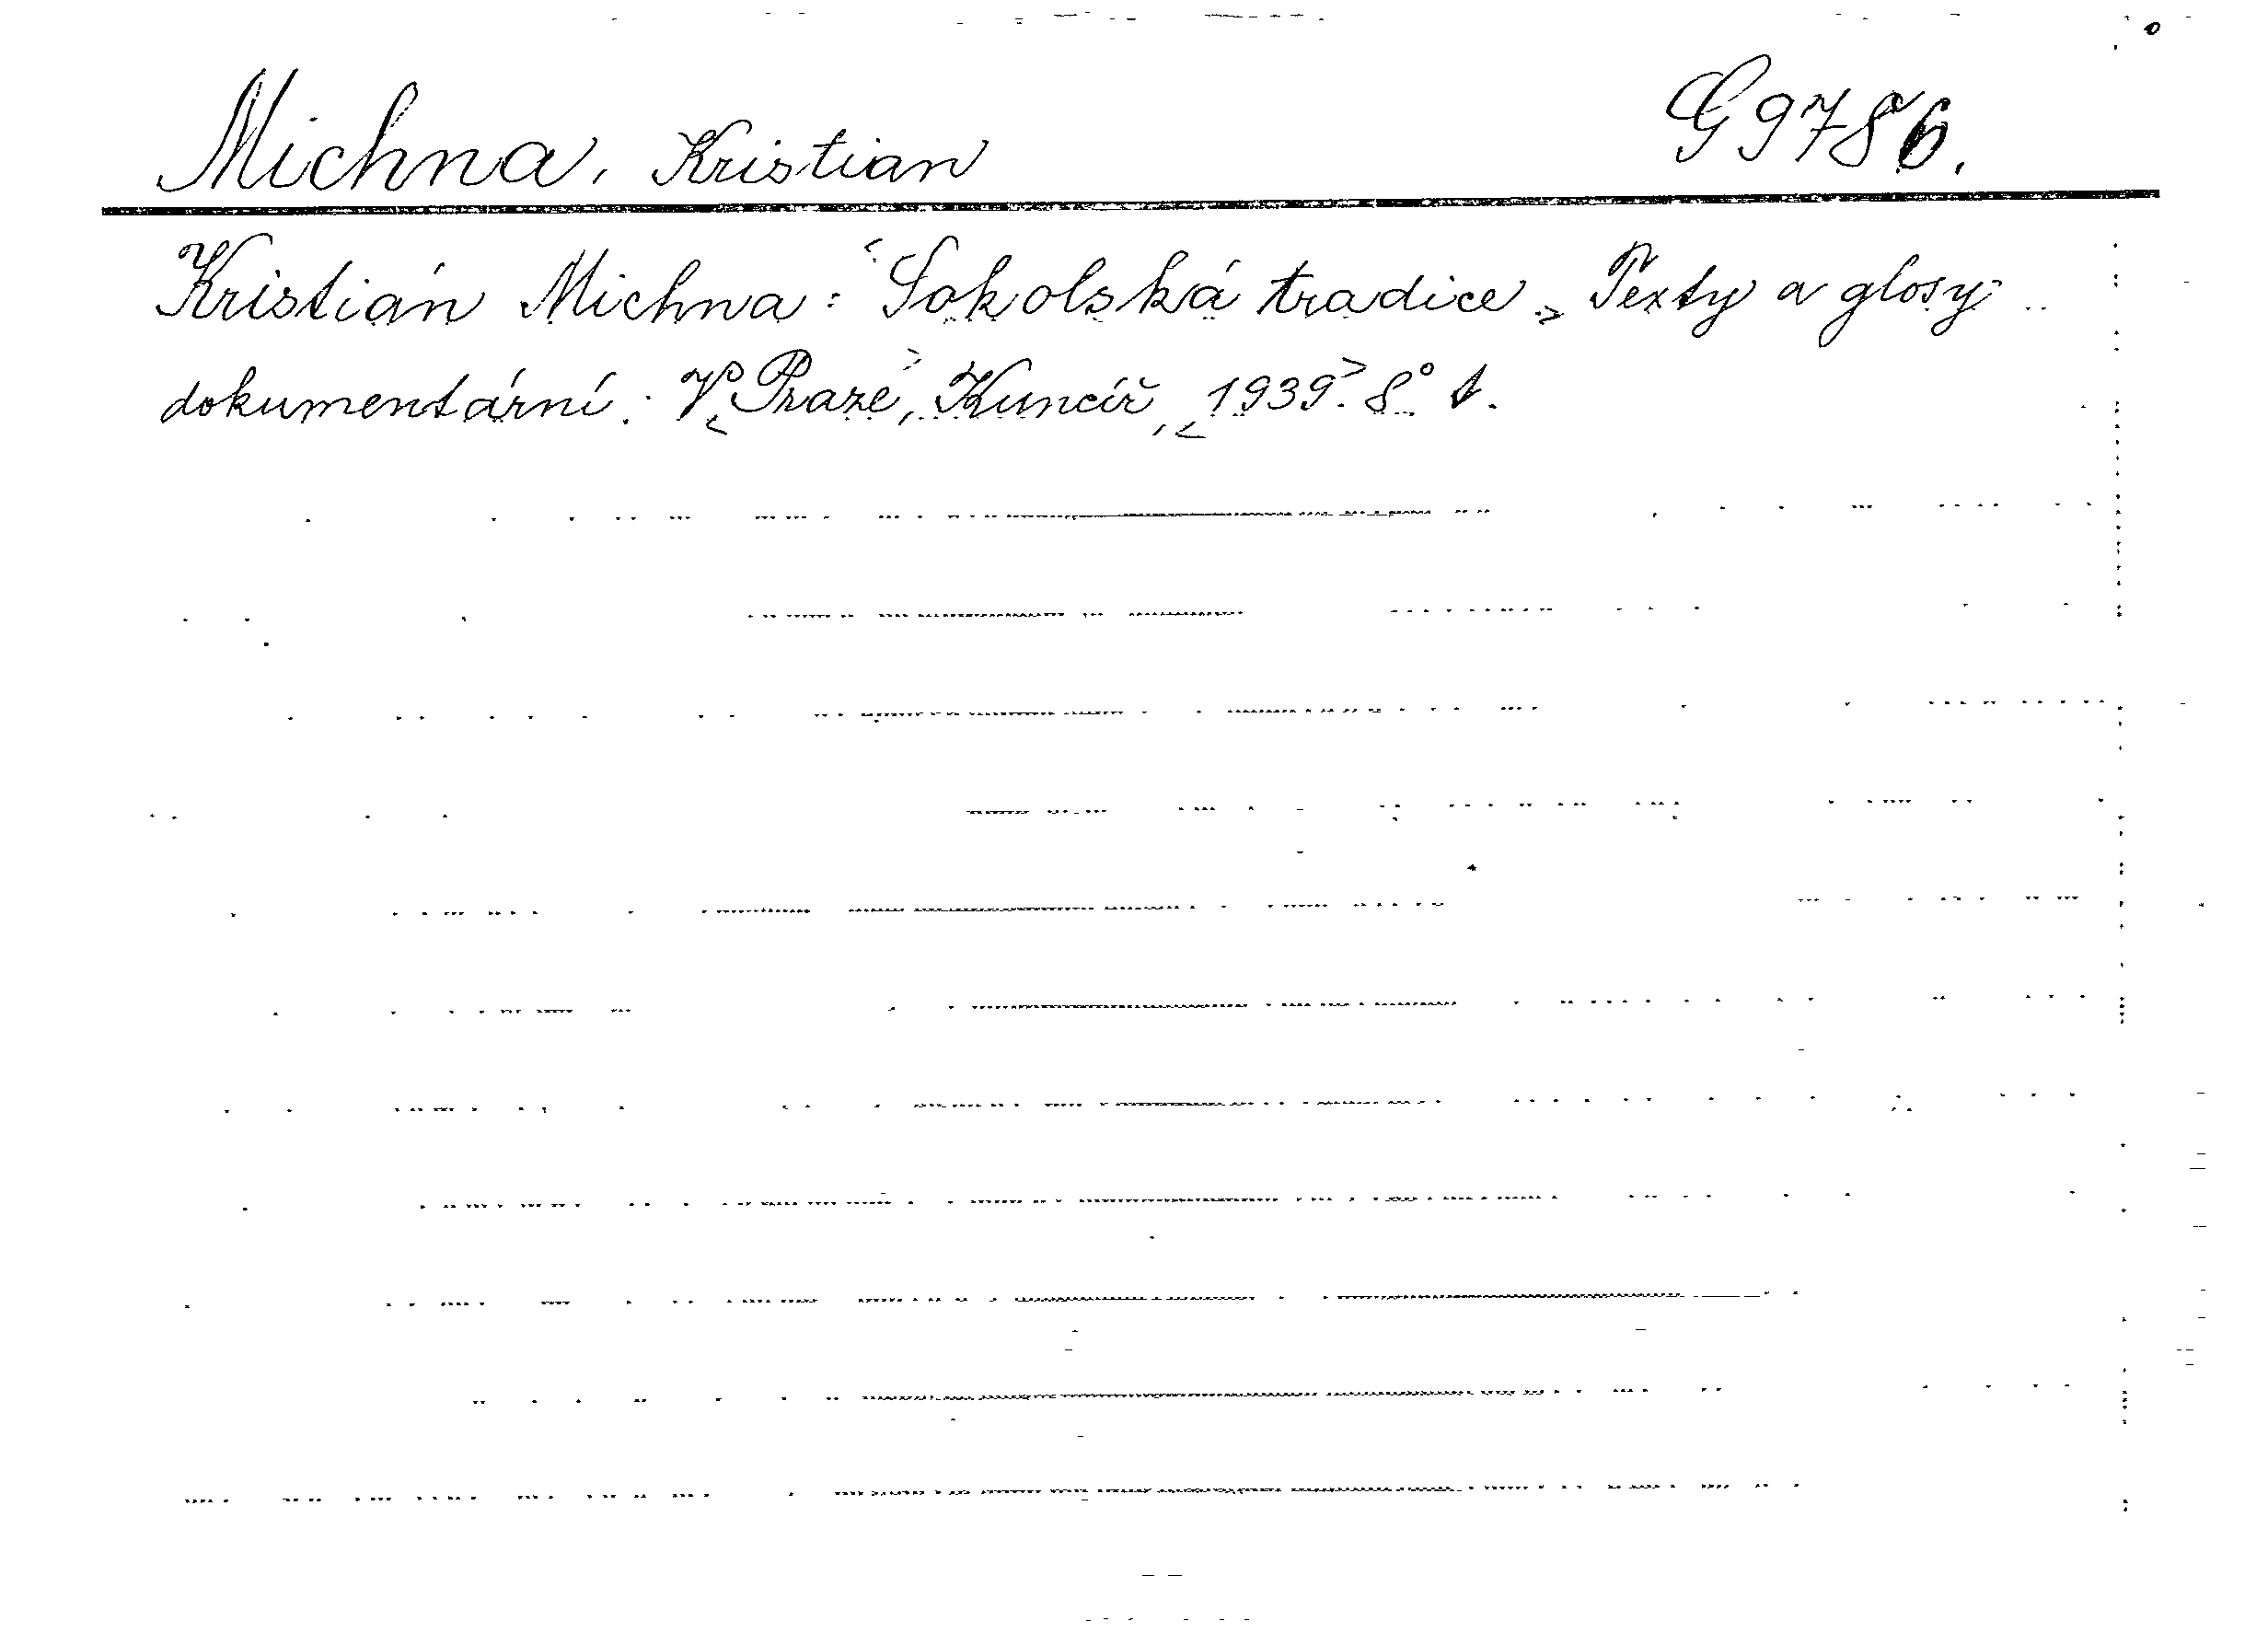 Michna, Kristian G 9786.
Kristián Michna: <Sokolská tradice.> Texty a glosy
dokumentární. V <Praze>, Kuncíř, <1939>. 8° 1.